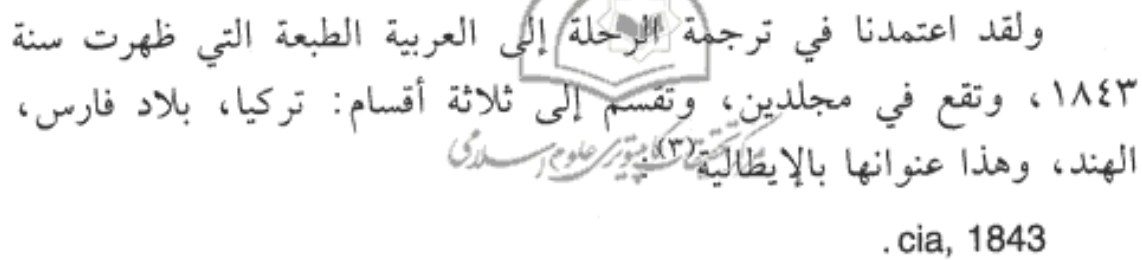 ولقد اعتمدنا في ترجمة الرحلة إلى العربية الطبعة التي ظهرت سنة
١٨٤٣، وتقع في مجلدين، وتقسم إلى ثلاثة أقسام: تركيا، بلاد فارس،
الهند، وهذا عنوانها بالإيطالية(٣):
مرکز تحقیقات کامپیوتری علوم اسلامی
cia, 1843.